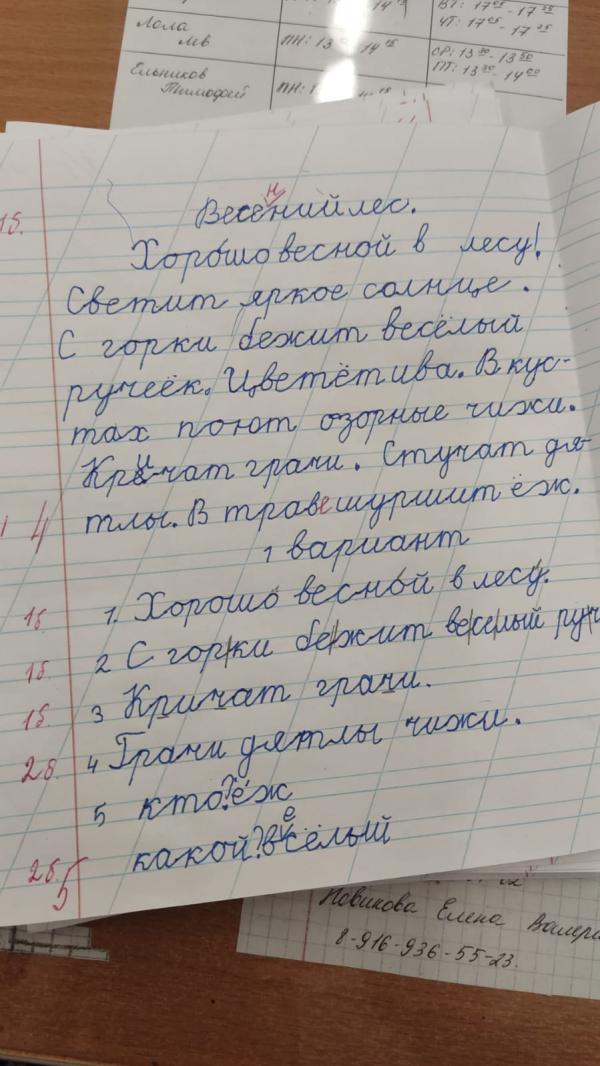 14 05
ВТ: 17 05 - 17 25
ЧТ: 17 05 - 17 25
Лола
МВ
ПН: 13 - 14 05
СР: 13 30 - 13 50
ПТ: 13 30 - 14 00
Ельников
Тимофей
ПН: 1
н
1б.
Весенийлес.
Хорошо весной в лесу!
Светит яркое солнце.
С горки бежит весёлый
ручеёк. Цветёт ива. В кус-
тах поют озорные чижи.
Кричат грачи. Стучат дя-
4 тлы. В траве шуршит ёж.
1 вариант
1б 1. Хорошо весной в лесу.
1б 2 С горки бежит веселый руч
1б 3 Кричат грачи.
2б. 4 Грачи дятлы чижи.
5 кто? ёж
2б. какой? весёлый
5
Новикова Елена Валери
8-916-936-55-23.